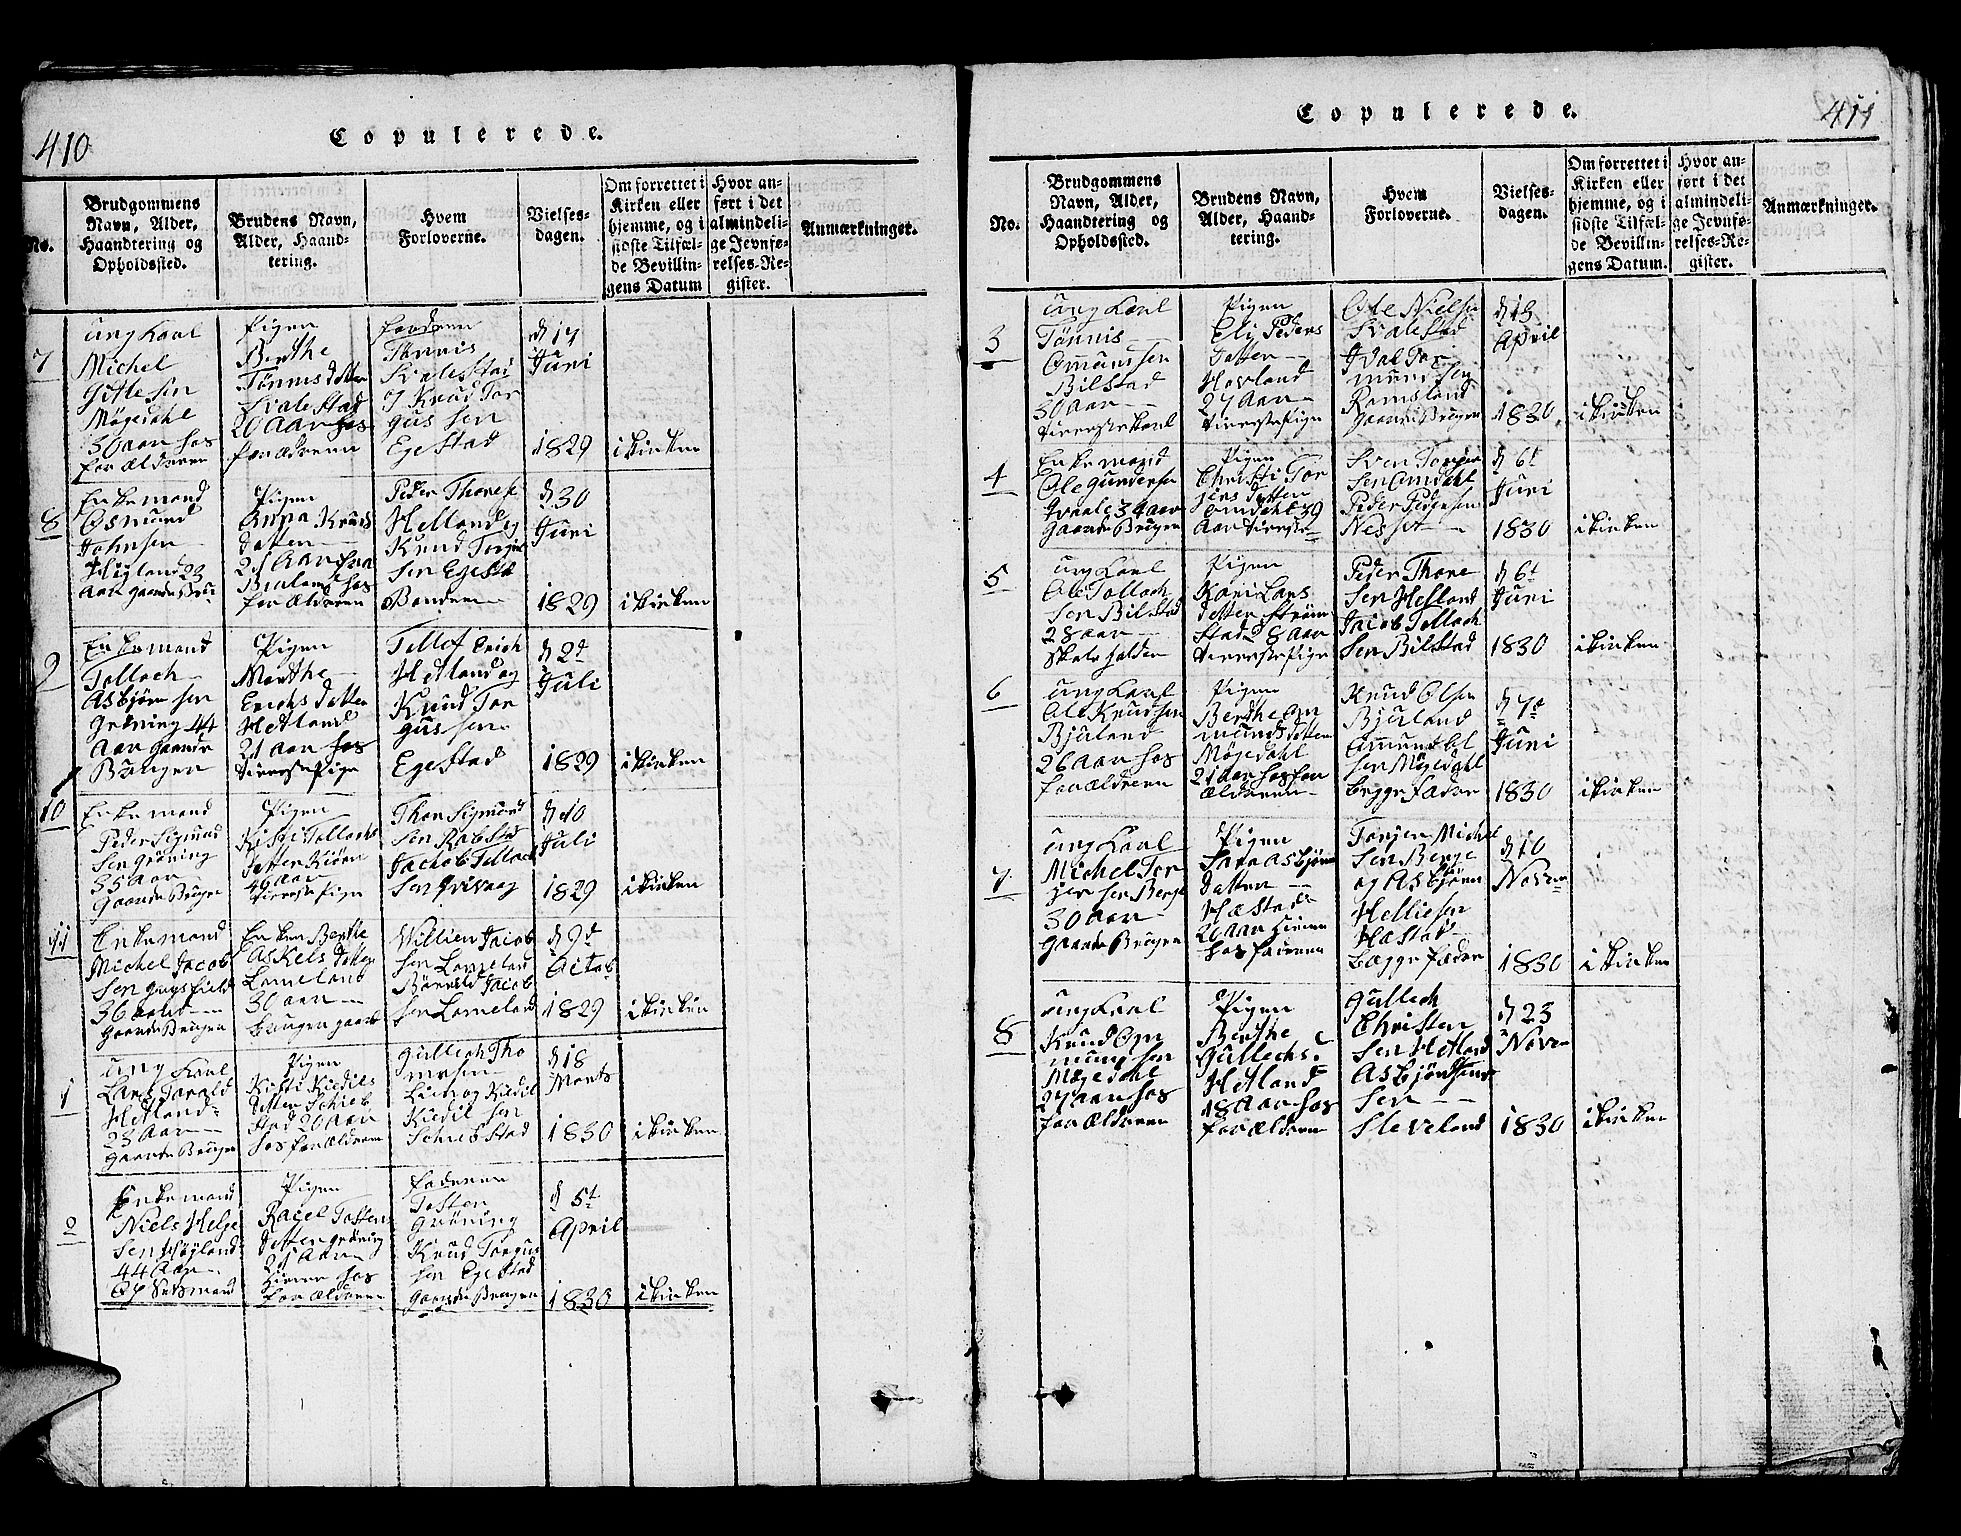 410
Copulerede.
No.
Brudgommens
Navn, Alder,
Haandtering og
Opholdssted.
Brudens Navn,
Alder, Haand-
tering.
Hvem
Forloverne.
Vielses-
dagen.
Om forrettet i
Kirken eller
hjemme, og i
sidste Tilfæl-
de Bevillin-
gens Datum
Hvor an-
ført i det
almindeli-
ge Jevnfø-
relses-Re-
gister.
Anmærkninger.
7
ung Karl
Michel
Gitlesen
Møgedahl
30 Aar hos
forældrene
Pigen
Berthe
Tønnisdatter
Svalestad
20 Aar hos
forældrene
faderen
Tønnis
Svalestad
Knud Tor
gussen
Egestad
Juni
1829
i Kirken
8
Enkemand
Osmund
Johnsen
Høgland 23
Aar
Pigen
Anna Knuds
datter
21 Aar
hos
forældrene
Peder Thorese
Helland og
Knud Torgus
sen Egesta
Bønder
d 30
Juni
1829
i Kirken
9
Enkemand
Tollach
Asbjørnsen
Grøning 44
Aar Gaard
Bruger
Pigen
Marthe
Erichsdatter
Hetland
21 Aar hos
Tienestepige
Tellef Erich
Hetland og
Knud Tor
gussen
Egestad
d 2d
Juli
1829
i Kirken
10
Enkemand
Peder Sigmund
sen Grøning
35 Aar
Gaardbruger
Pigen
Kisti Tollachs
datter
Tienestepige
Thor Sigmund
sen Rabstad
Jacob Tollach
sen
d 10
Juli
1829
i Kirken
11
Enkemand
Michel Jacob
sen
36 Aar
Gaardbruger
Enken Berthe
Askels datter
Lomeland
30 Aar
Willien Jacob
sen Lomeland
Jacob
sen Lomeland
d 9d
Octob
1829
i Kirken
1
ung Karl
Lars Torald
Hetland
23 Aar
Gaardbruger
Pigen
Kisti Kiedils
datter Schieb
stad 20 Aar
hos forældrene
Gullech Tho
msen
Lien og Kiedil
Kiedilsen
Schiebstad
d 18
Marts
1830
i Kirken
2
Enkemand
Niels Helge
sen Høyland
44 Aar
Pigen
Raeel Tostens
datter Grøning
21 Aar
hos
forældrene
faderen
Tosten
Grøning
Knud Torgus
sen Egestad
Gaardbruger
d 5t
April
1830
i Kirken
411
Copulerede.
No.
Brudgommens
Navn, Alder,
Haandtering og
Opholdssted.
Brudens Navn,
Alder, Haand-
tering.
Hvem
Forloverne.
Vielses-
dagen.
Om forrettet i
Kirken eller
hjemme, og i
sidste Tilfæl-
de Bevillin-
gens Datum.
Hvor an-
ført i det
almindeli-
ge Jevnfø-
relses-Re-
gister.
Anmærkninger.
3
ung Karl
Tønnis
Omunssen
Bilstad
30 Aar
Tienestekarl
Pigen
Eli Peders
datter
Hovland
27 Aar
Tienestepige
Ole Nielsen
Svalestad
Ramsland
Gaardbruger
April
1830
i Kirken
4
Enkemand
Ole Gundersen
34 Aar
Gaardbruger
Pigen
Christi Tor
jersdatter
Omdahl 39
Aar
Sven Torjer
sen Omdahl
Peder Pedersen
Nesset
d 6t
Juni
1830
i Kirken
5
ung Karl
Ole Tollach
sen Bilstad
28 Aar
Skoleholder
Pigen
Kari Lars
datter Strøm
stad 28 Aar
Tienestepige
Peder Thore
sen Helland
Jacob Tollach
sen Bilstad
d 6t
Juni
1830
i Kirken
6
ung Karl
Ole Knudsen
Bjuland
26 Aar hos
forældrene
Pigen
Berthe Om
mundsdatter
Møgedahl
21 Aar hos for
ældrene
Knud Olsen
Bjuland
sen Møgedahl
begge fædre
d 7d
Juni
1830
i Kirken
7
ung Karl
Michel Tor
jersen Berge
30 Aar
Gaardbruger
Pigen
Sara Asbjørns
datter
Hæstad
26 Aar
hos faderen
Torjer Michel
sen Berge
og Asbjørn
Helliesen
Hæstad
begge fædre
d 10
Novem
1830
i Kirken
8
ung Karl
Knud Om
mundsen
Møgedal
27 Aar hos
forældrene
Pigen
Berthe
Gullechsd
Hetland
18 Aar hos
forældrene
Gullech
Christen
sen Hetland
Asbjørn
sen
Sleveland
d 23
Nove
1830
i Kirken